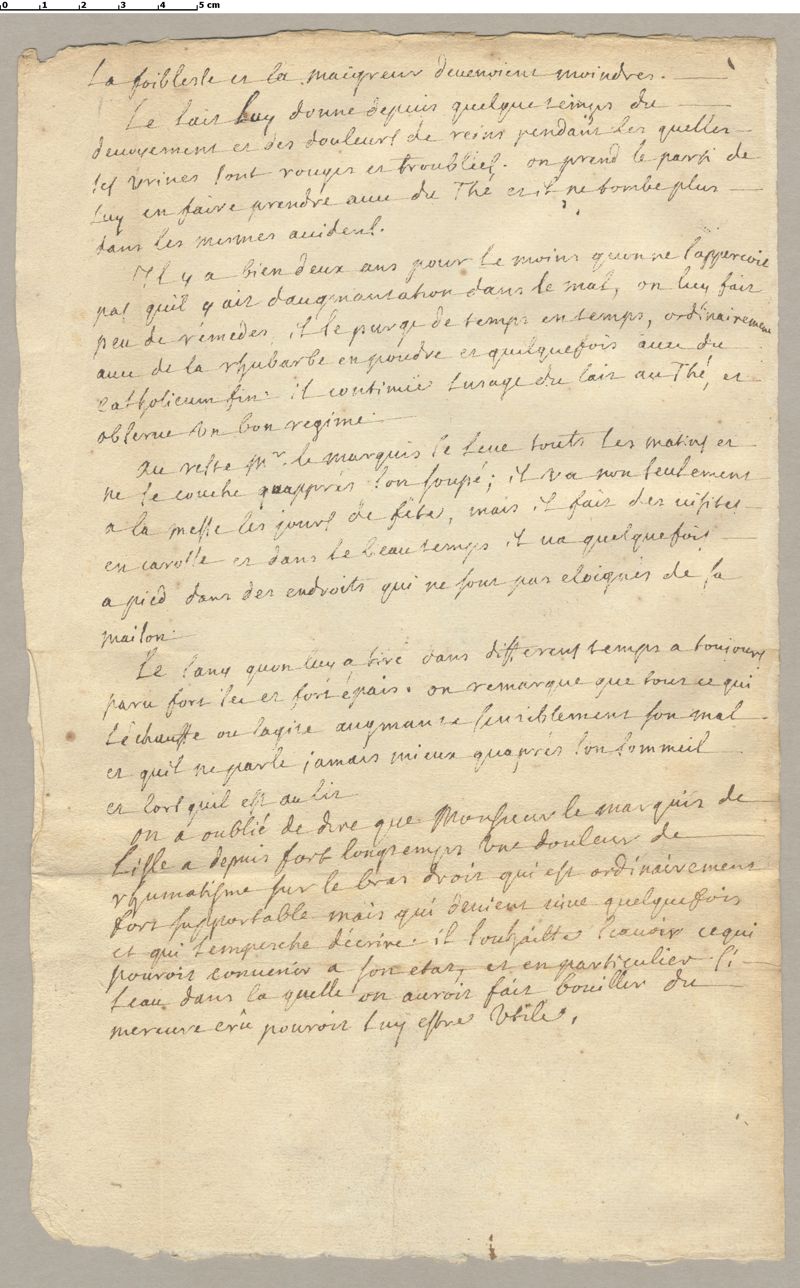 0 1 2 3 4 5 cm
La foiblesse et la maigreur devenoient moindres.
Le lait luy donne depuis quelque temps du
devoyement et des douleurs de reins pendant les quelles
ses urines sont rouges et troublées. on prend le parti de
luy en faire prendre avec du Thé et il ne tombe plus
dans les mesmes accidens.
Il y a bien deux ans pour le moins quon ne sapperçoit
pas quil y ait daugmantation dans le mal, on luy fait
peu de remedes, il se purge de temps en temps, ordinairement
avec de la rhubarbe en poudre et quelquefois avec du
catholicum fin. il continüe lusage du lait au Thé, et
observe un bon regime.
Au reste Mr. le marquis se leve touts les matins et
ne se couche quapprés son soupé; il va non seulement
a la messe les jours de féte, mais il fait des visites
en carosse et dans le beau temps il va quelquefois
a pied dans des endroits qui ne sont pas eloignés de sa
maison.
Le sang quon luy a tiré dans differents temps a toujours
paru fort sec et fort épais. on remarque que tout ce qui
léchauffe ou lagite augmante sensiblement son mal
et quil ne parle jamais mieux quaprés son sommeil
et lors quil est au lit
on a oublié de dire que Monsieur le marquis de
Lisle a depuis fort longtemps une douleur de
rhumatisme sur le bras droit qui est ordinairement
fort supportable mais qui devient vive quelquefois
et qui lempesche décrire. il souhaitte sçavoir ce qui
pouroit convenir a son etat, et en particulier si
leau dans la quelle on auroit fait bouiller du
mercure crû pouroit luy estre utile.